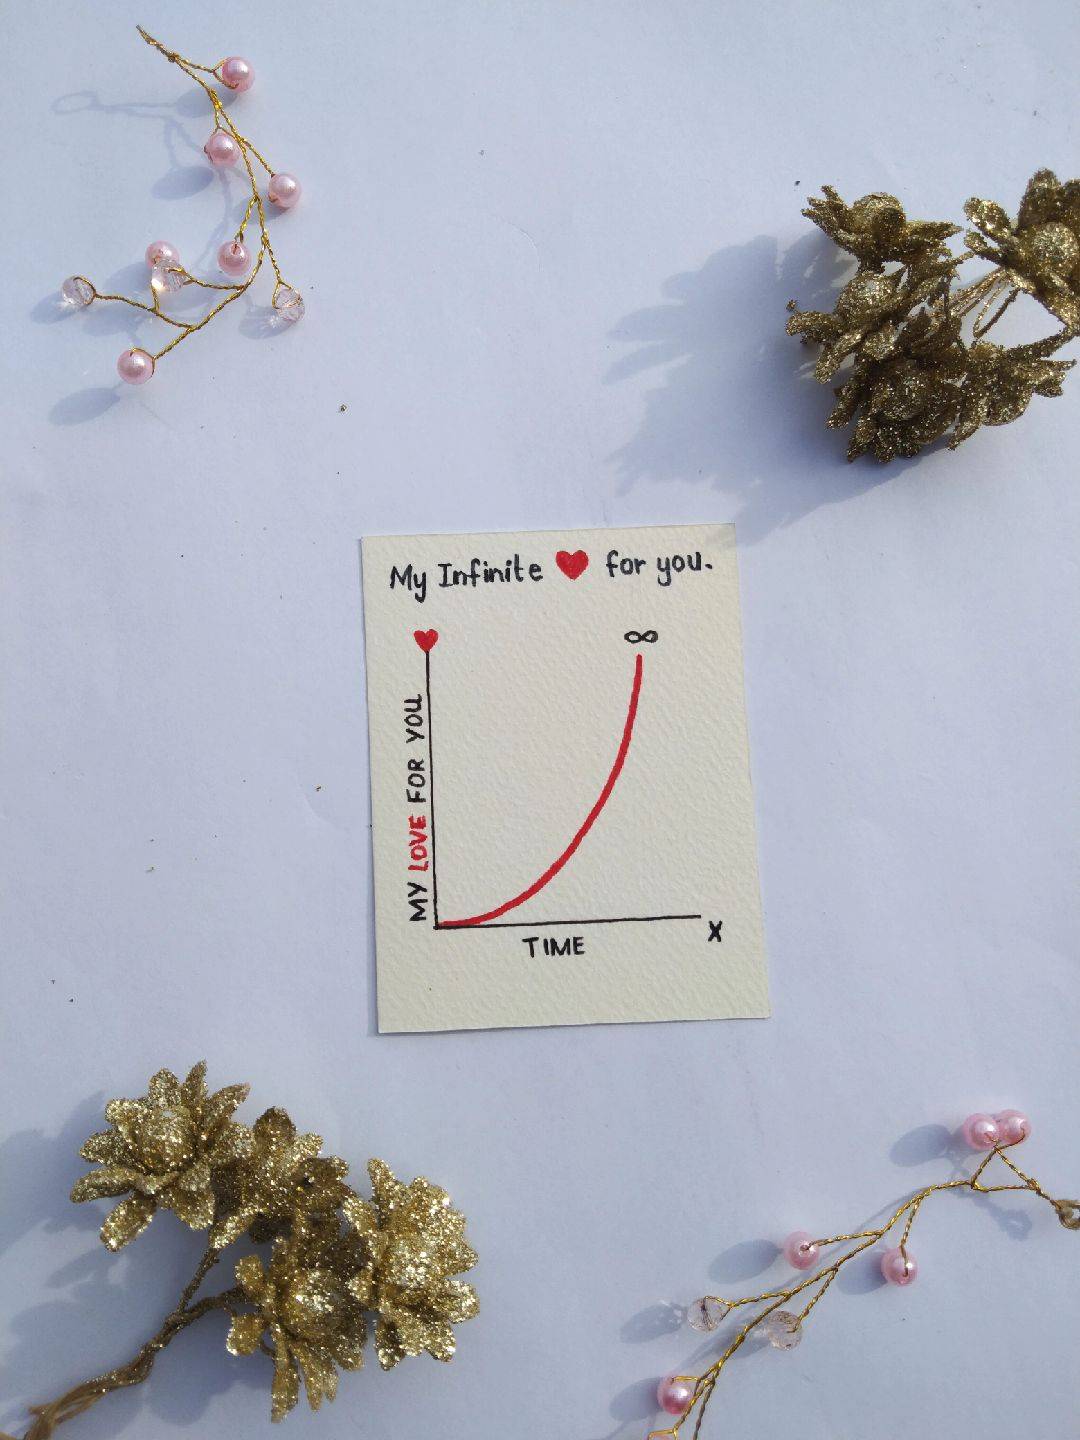 My Infinite ❤ for you.
∞
MY LOVE FOR YOU
TIME
X